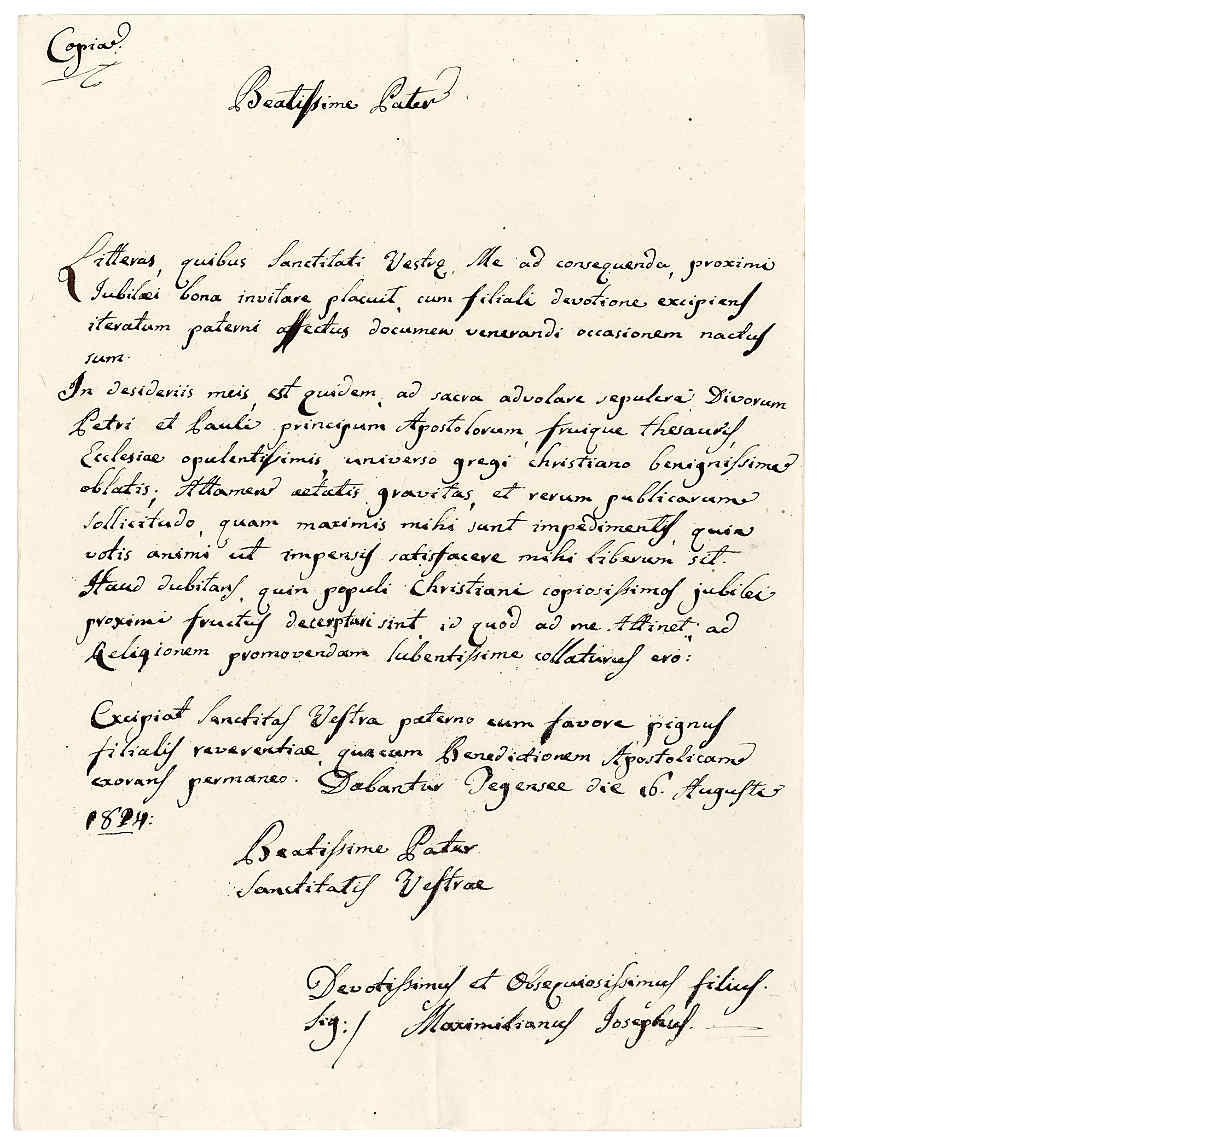 Copia.
Beatissime Pater
Litteras, quibus Sanctitati Vestrę, Me ad consequenda, proximi
Jubilæi bona invitare placuit, cum filiali devotione excipiens
iteratum paterni affectus documen venerandi occasionem nactus
sum.
In desideriis meis, est quidem, ad sacra advolare sepulcra Divorum
Petri et Pauli principum Apostolorum, fruique thesauris,
Ecclesiae opulentissimis, universo gregi christiano benignissime
oblatis; Attamen aetatis gravitas, et rerum publicarum
sollicitudo, quam maximis mihi sunt impedimentis, quia
votis animi ut impensis satisfacere mihi liberum sit.
Haud dubitans, quin populi Christiani copiosissimos jubilei
proximi fructus decerpturi sint, id quod ad me Attinet, ad
Religionem promovendam lubentissime collaturus ero:
Excipiat Sanctitas Vestra paterno cum favore pignus
filialis reverentiae, quacum Benedictionem Apostolicam
exorans permaneo. Dabantur Tegensee die 16. Augusti
1824:
Beatissime Pater
Sanctitatis Vestrae
Devotissimus et Obsequiosissimus filius.
Sig:/ Maximilianus Josephus.